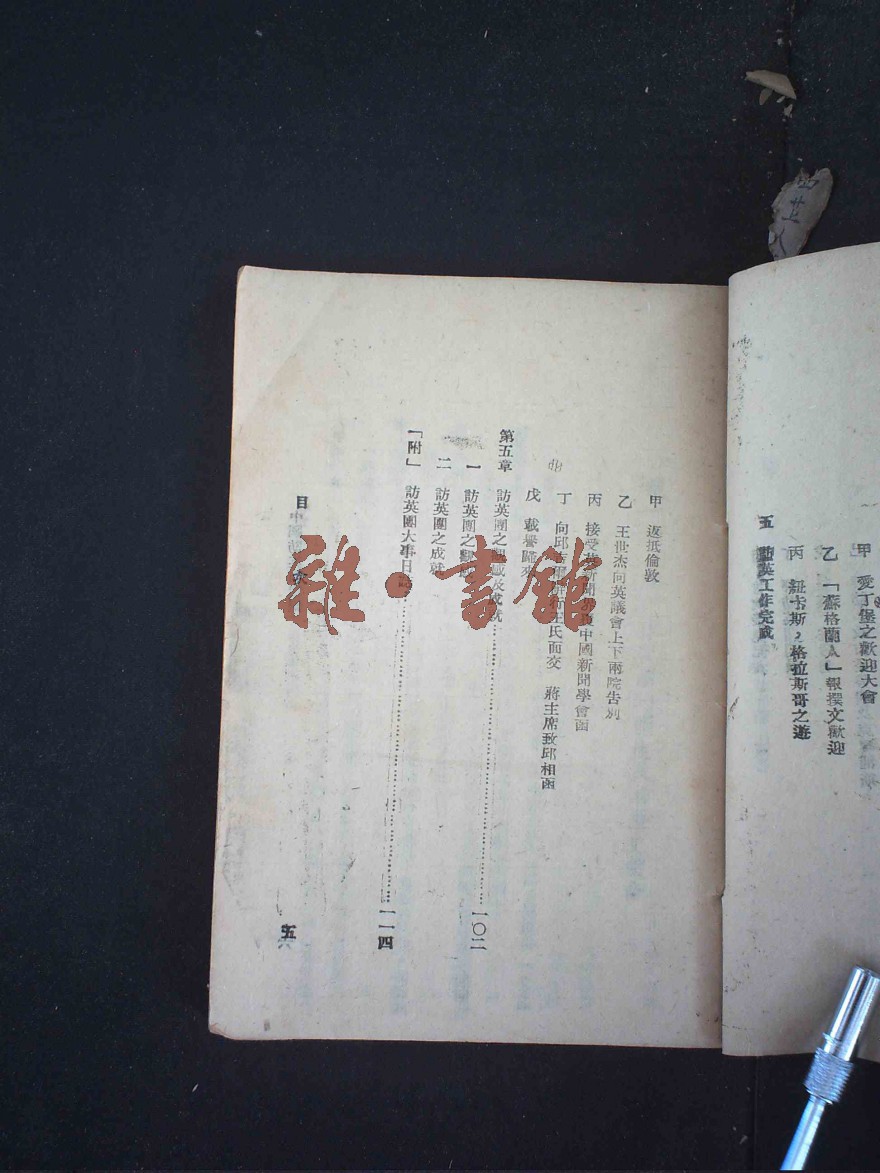 甲 愛丁堡之歡迎大會
乙 「蘇格蘭人」報撰文歡迎
丙 紐卡斯，格拉斯哥之遊
五 訪英工作完成
甲 返抵倫敦
乙 王世杰向英議會上下兩院告別
丙 接受 新聞 中國新聞學會函
丁 向邱 王氏面交 蔣主席致邱相函
戊 載譽歸來
第五章 訪英團之 及成就 一〇二
一 訪英團之
二 訪英團之成就
「附」 訪英團大事日 一一四
目
五
雜·書館
西 八